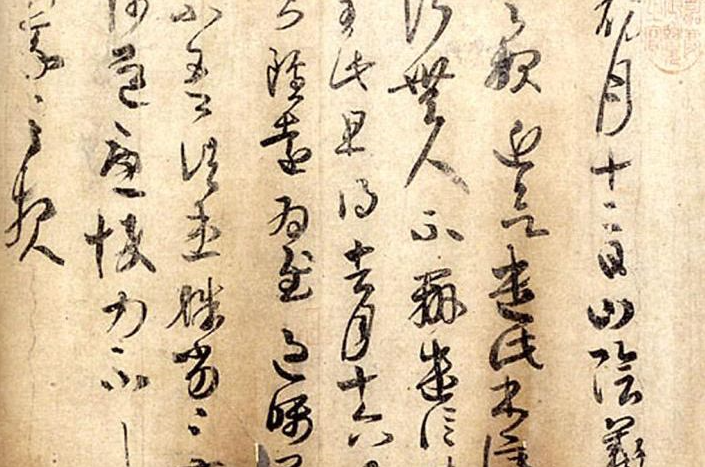 初月十二日山陰羲
之報近欲遣此書停
行無人不辦遣信昨
至此且得去月十六日
雖遠為慰過囑
不吾諸患殊劣々方
陟道憂悴力不
羲之報